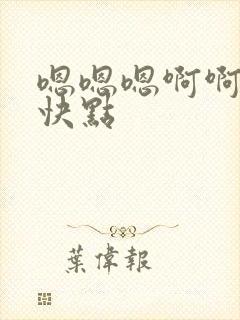 嗯嗯嗯啊啊
快點
葉偉報